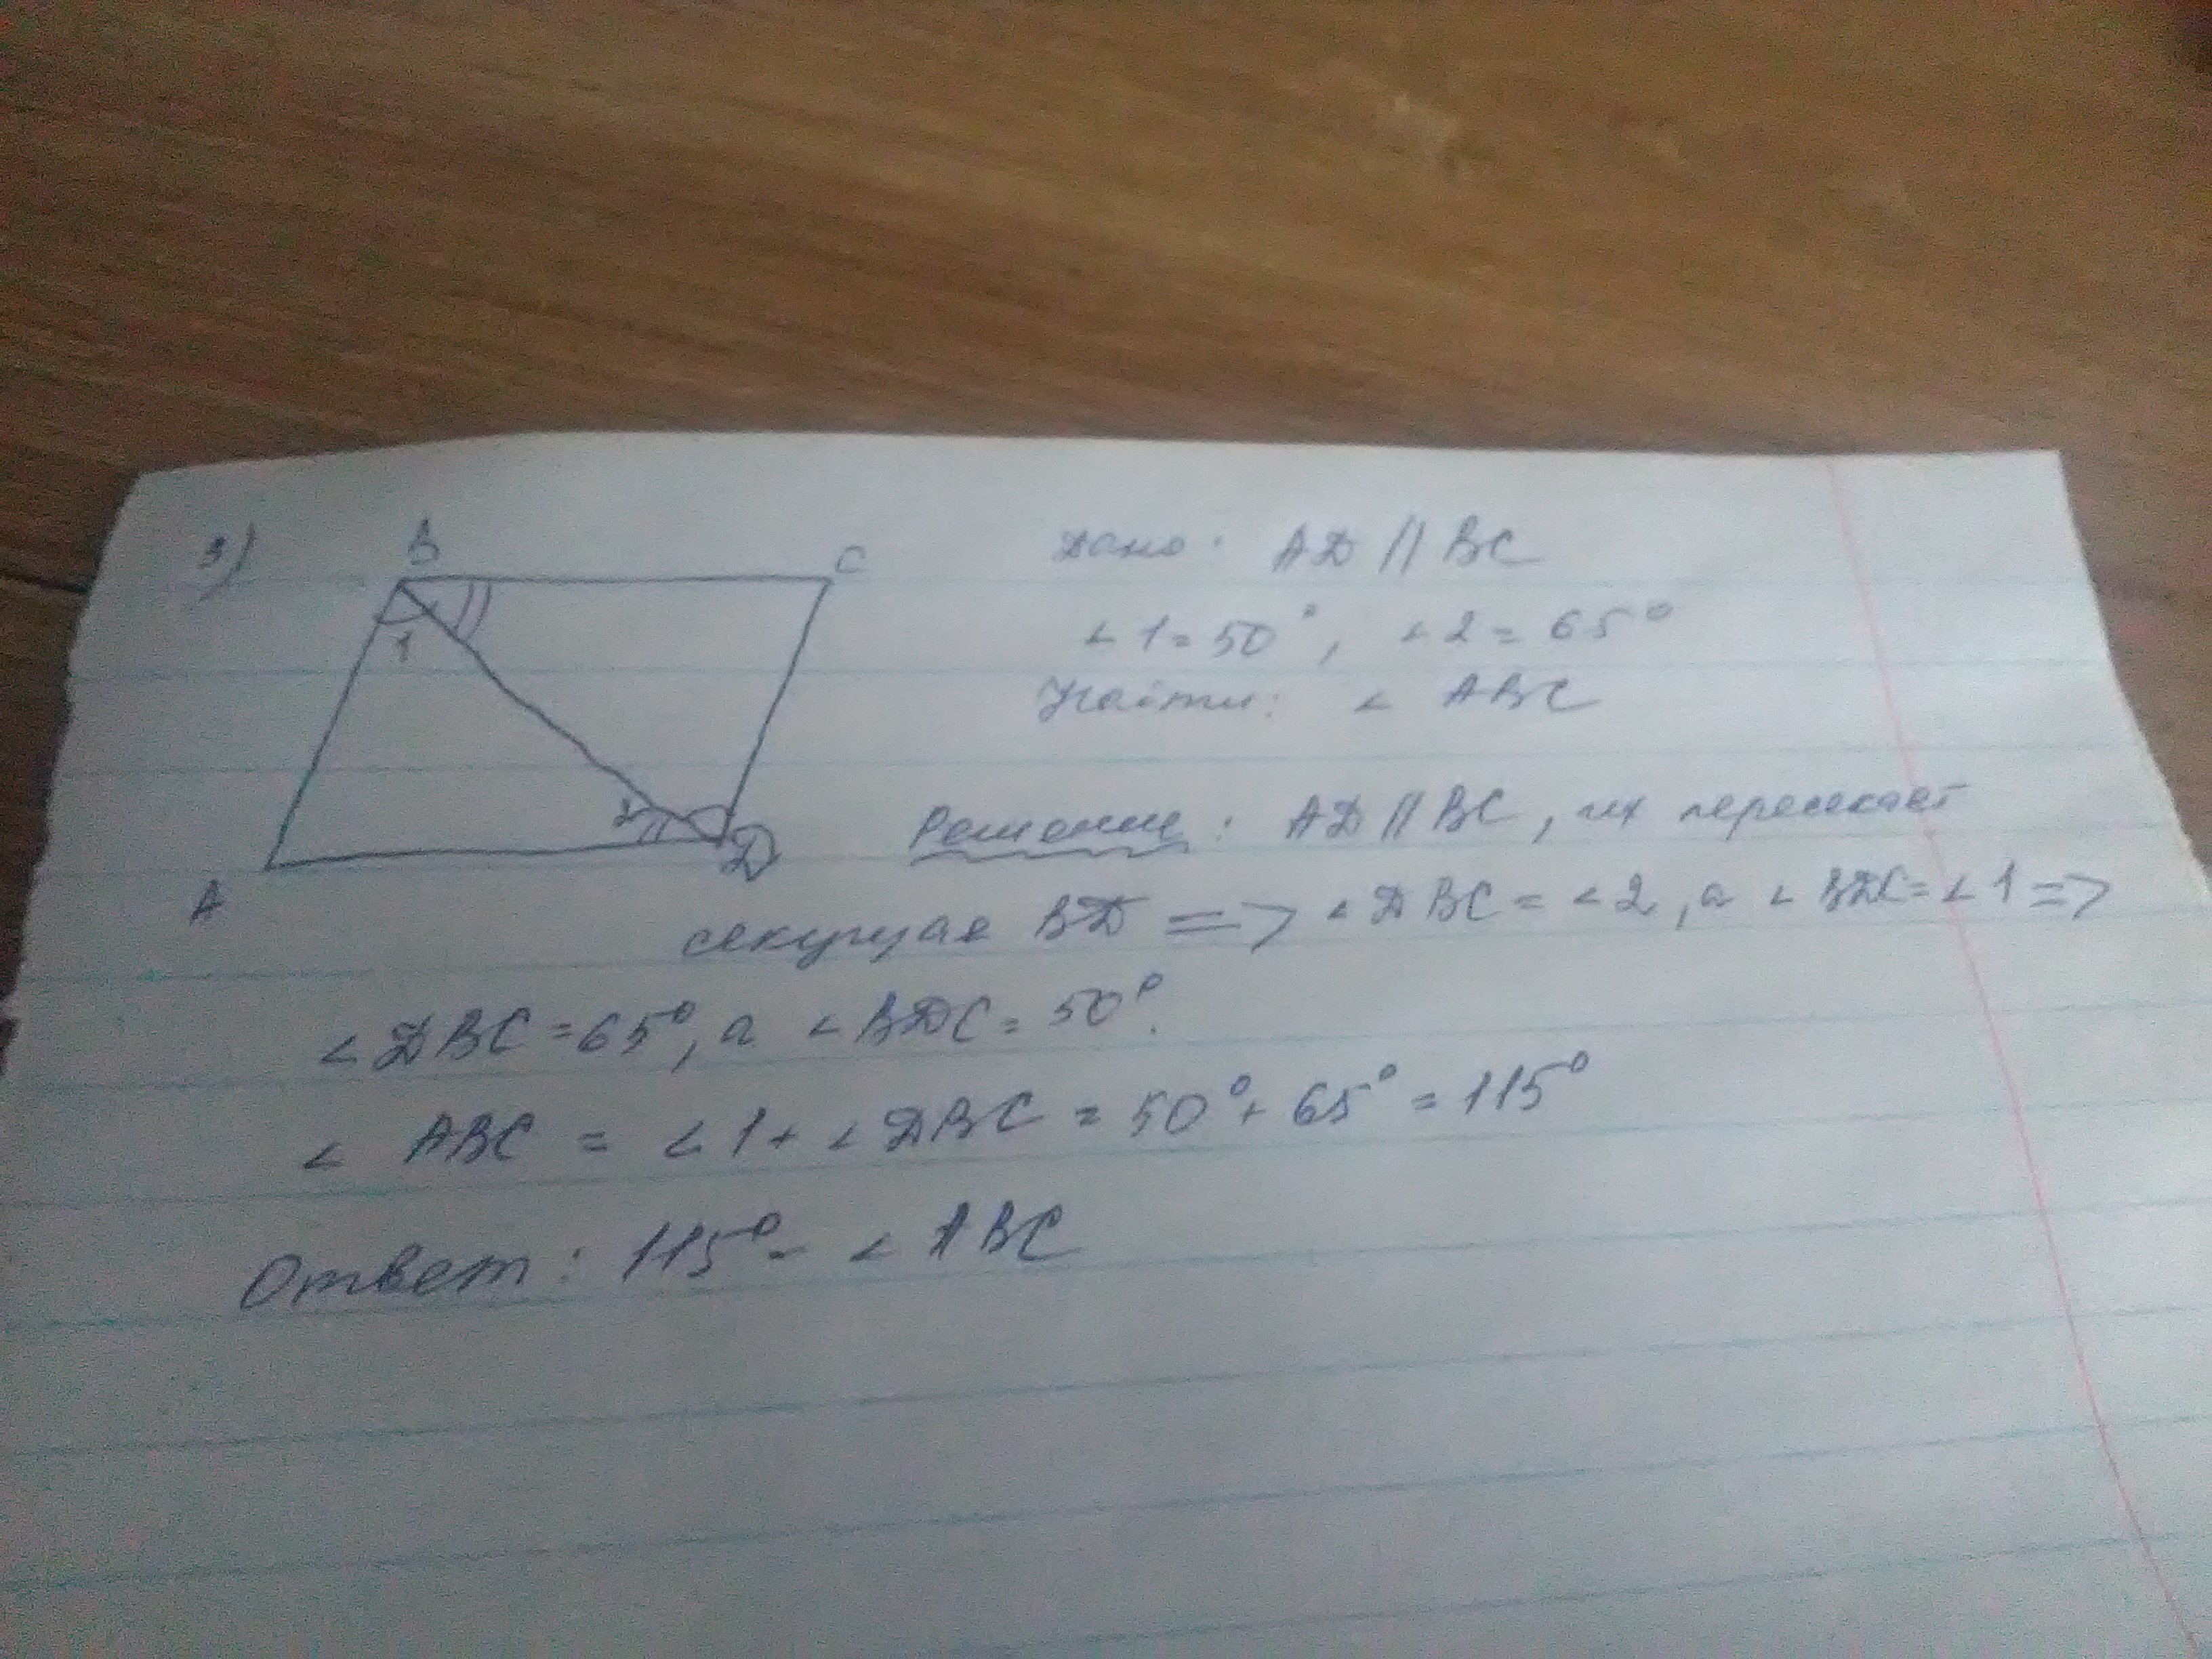 3)
B
C
1
2
A
D
Дано: AD || BC
∠1 = 50°, ∠2 = 65°
Найти: ∠ ABC
Решение: AD || BC, их пересекает
секущая BD => ∠DBC = ∠2, а ∠BDC = ∠1 =>
∠DBC = 65°, а ∠BDC = 50°.
∠ ABC = ∠1 + ∠DBC = 50° + 65° = 115°
Ответ: 115° - ∠ ABC